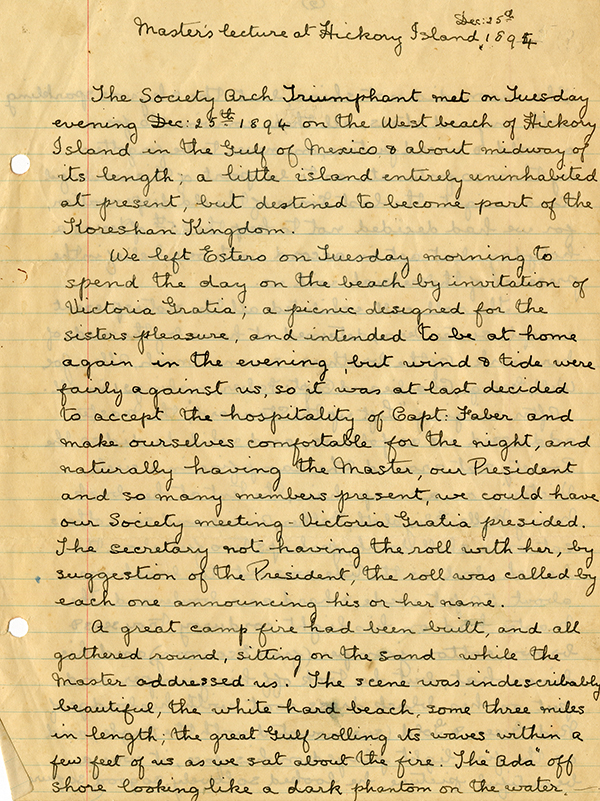 Dec: 25th
Master's lecture at Hickory Island, 1894
The Society Arch Triumphant met on Tuesday
evening Dec: 25th 1894 on the West beach of Hickory
Island in the Gulf of Mexico & about midway of
its length; a little island entirely uninhabited
at present, but destined to become part of the
Koreshan Kingdom.
We left Estero on Tuesday morning to
spend the day on the beach by invitation of
Victoria Gratia; a picnic designed for the
sisters pleasure, and intended to be at home
again in the evening, but wind & tide were
fairly against us, so it was at last decided
to accept the hospitality of Capt: Faber and
make ourselves comfortable for the night, and
naturally having the Master, our President
and so many members present, we could have
our Society meeting - Victoria Gratia presided.
The secretary not having the roll with her, by
suggestion of the President, the roll was called by
each one announcing his or her name.
A great camp fire had been built, and all
gathered round, sitting on the sand while the
Master addressed us. The scene was indescribably
beautiful, the white hard beach, some three miles
in length; the great Gulf rolling its waves within a
few feet of us as we sat about the fire. The "Ada" off
shore looking like a dark phantom on the water. —